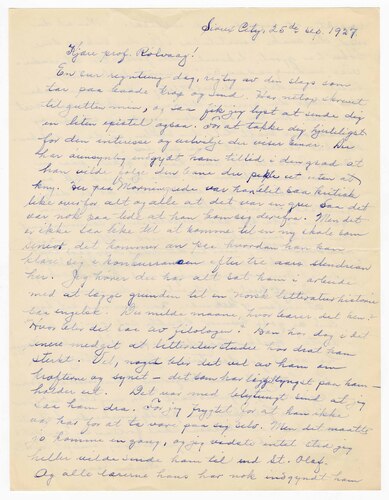 Sioux City, 25de sep. 1927
Kjære prof. Rolvaag!
En sur regntung dag, rigtig av den slags som
tar paa baade krop og sind. Har netop skrevet
til gutten min, og saa fik jeg lyst at sende dig
en liten epistel ogsaa. For at takke dig hjerteligst
for den interesse og velvilje du viser Einar. Du
har aapenbart indgydt ham tillid i den grad at
han vilde følge den time du uten at
kny. Her paa Morningside var han litt saa kritisk
like over for alt og alle at det var en gru. Saa det
var nok paa tide at han kom sig derifra. Men det
er ikke saa like til at komme til en ny skole som
senior, det kommer an paa hvordan han kan
klare sig i konkurransen efter tre aars slendrian
her. Jeg hører du har alt sat ham i arbeide
med at lægge grunden til en norsk litteratur historie
paa engelsk. Du milde maane, hvor bærer det hen?
Hvad blev det saa av filologien? Men han har jo i det
senere meget at litteratur studie har drat ham
sterkt. Vel, noget blir det vel av ham om
kræftene og synet – det som har tyngst paa ham –
holder ut. Det var med beklemt sind at jeg
saa ham dra. For jeg frygtet for at han ikke
var kar for at ta vare paa sig selv. Men det maatte
jo komme en gang, og jeg vidste intet sted jeg
heller vilde sende ham til end St. Olaf.
Og alle lærerne hans har nok indgyndt ham